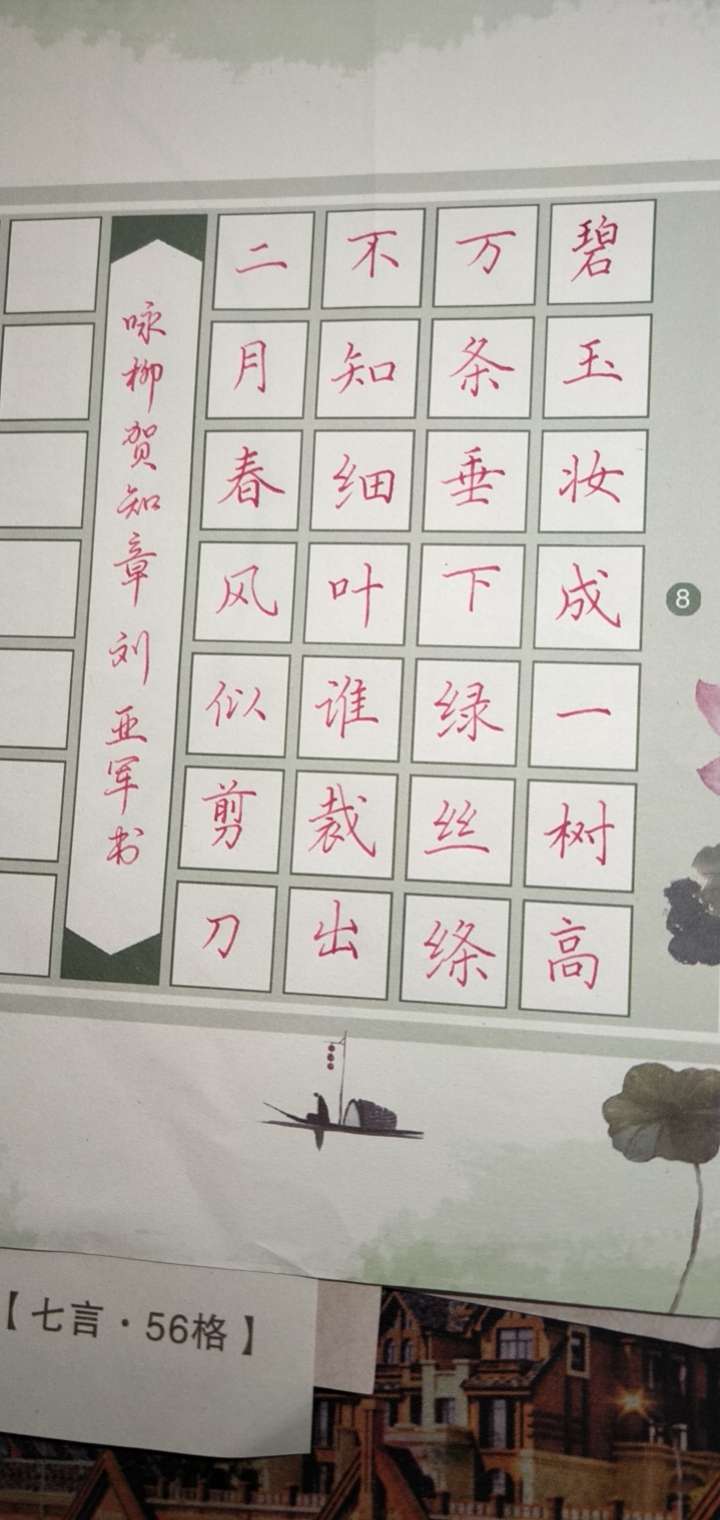 碧玉妆成一树高
万条垂下绿丝绦
不知细叶谁裁出
二月春风似剪刀
咏柳贺知章 刘亚军书
8
【七言·56格】